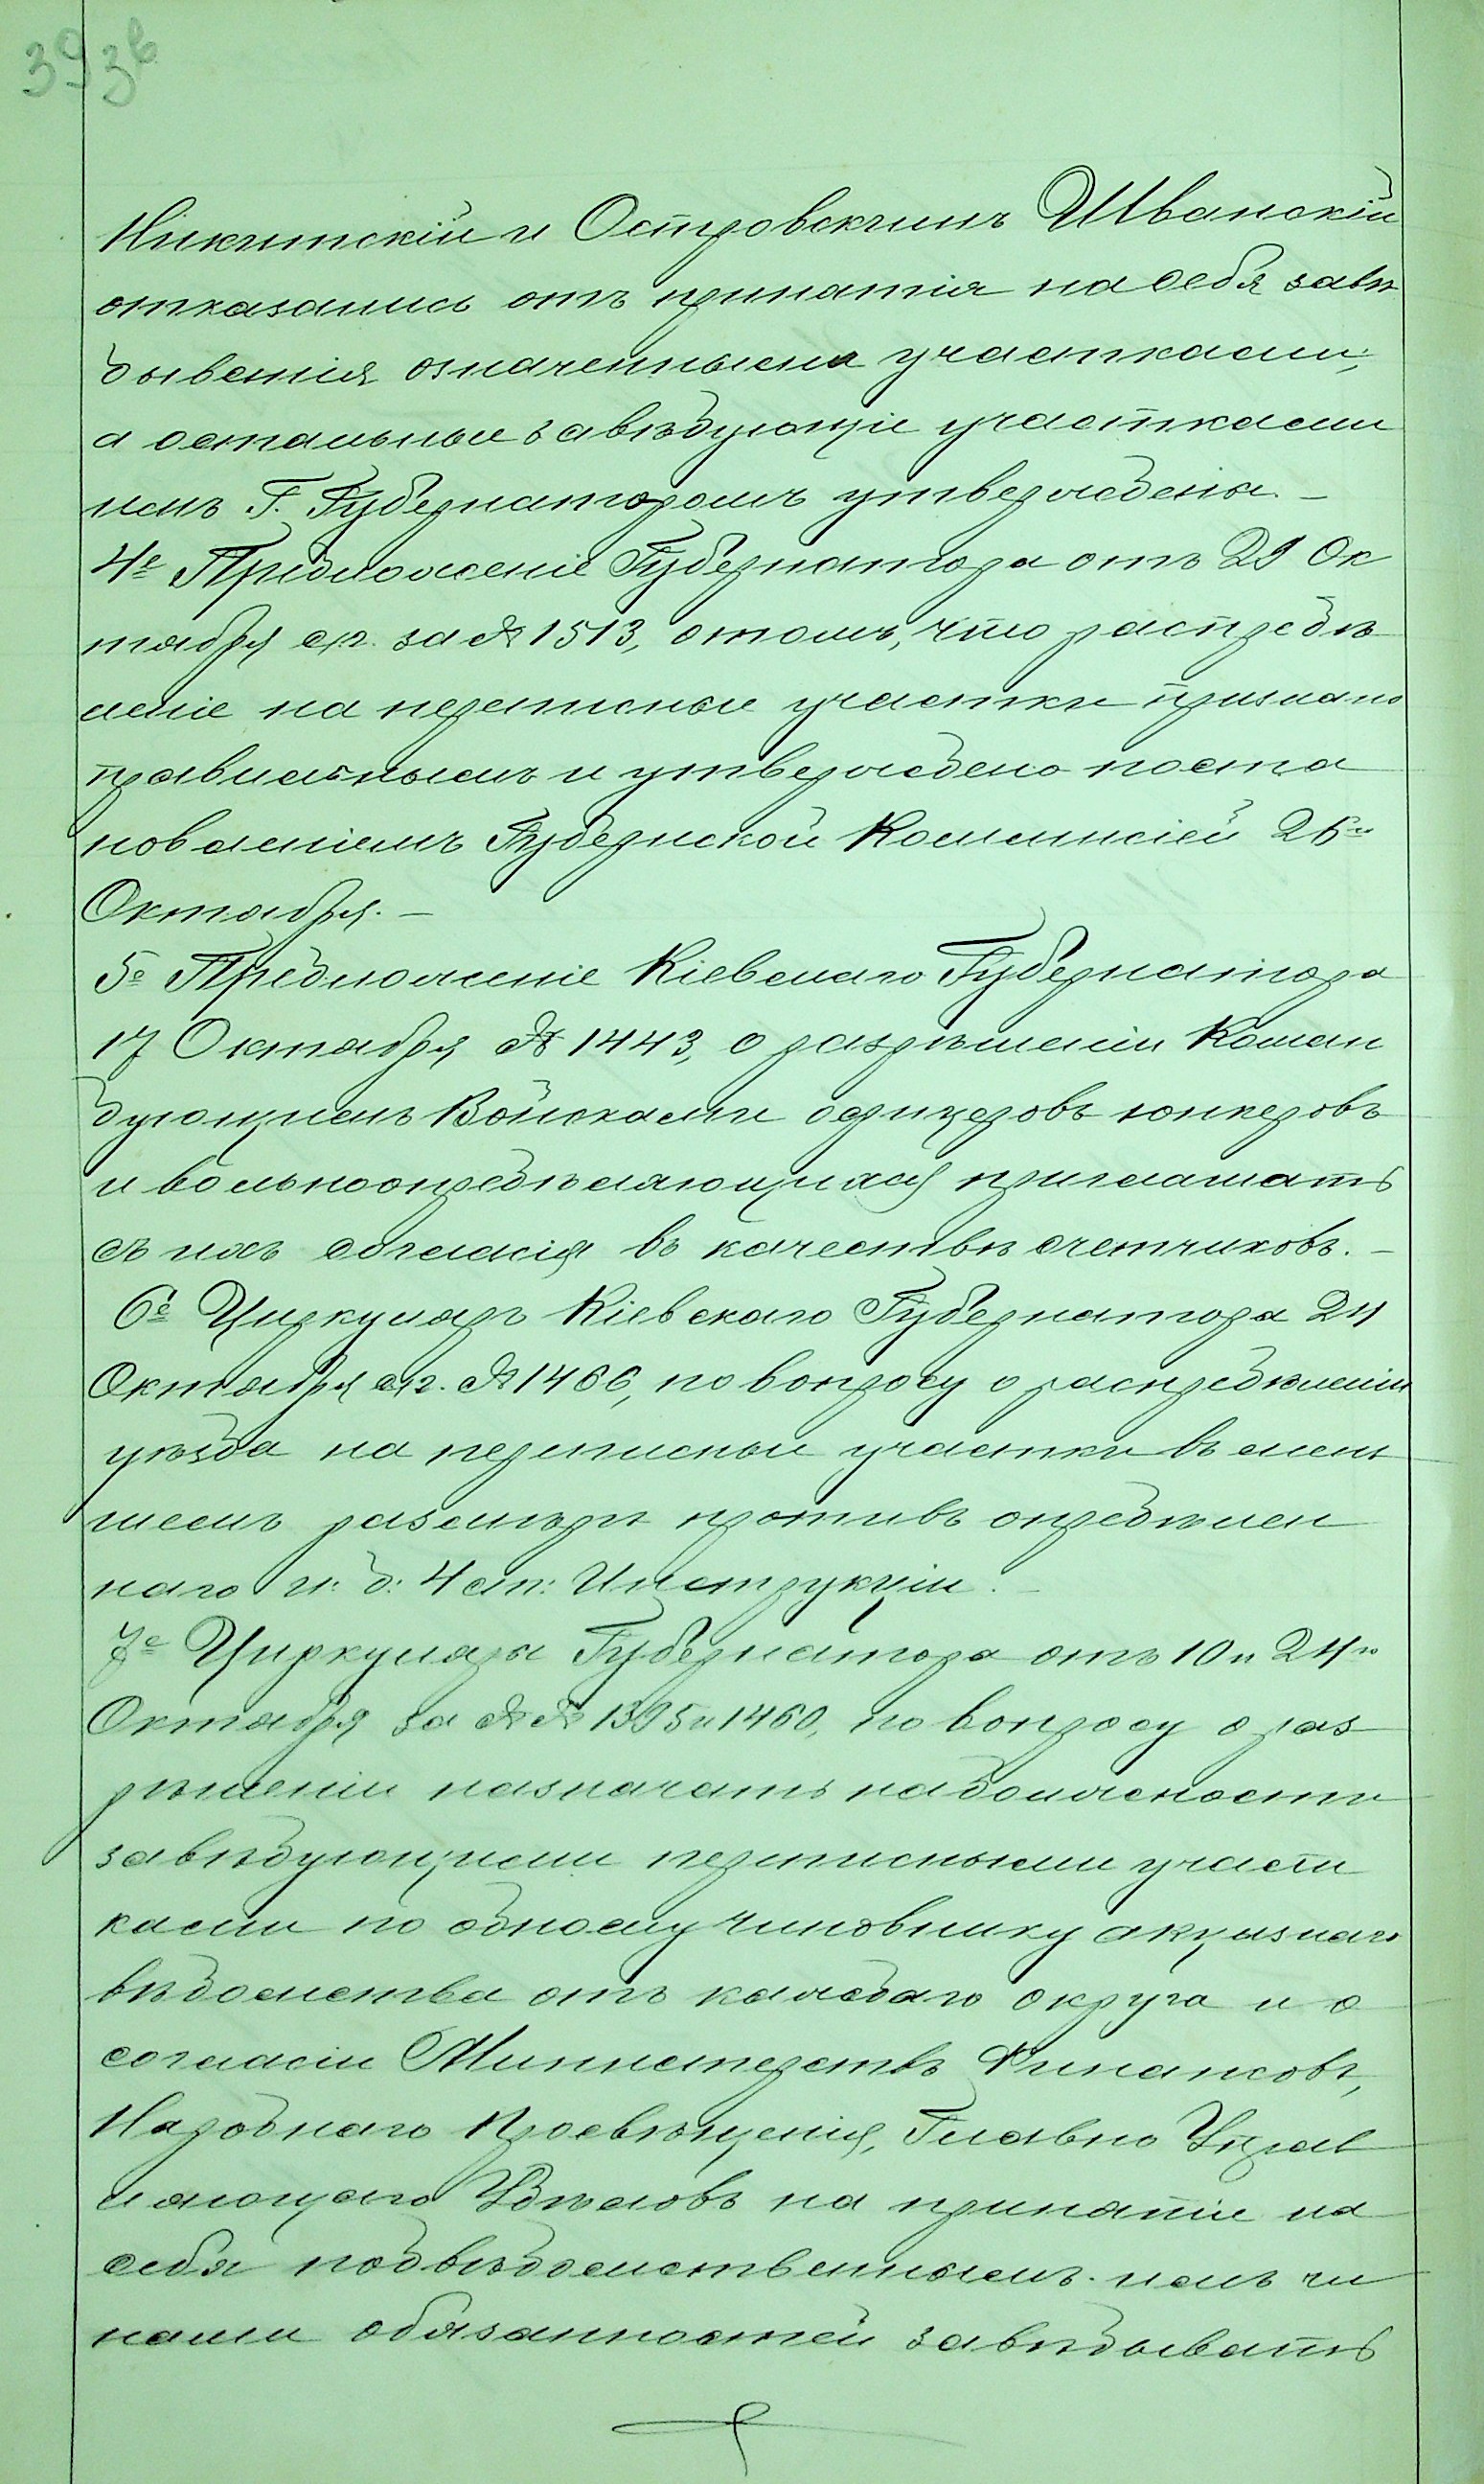 39 зв
Никитскій и Островскимъ Шванскій
отказались отъ принятія на себя завѣ
дыванія означенными участками;
а остальные завѣдующіе участками
имъ Г. Губернаторомъ утверждены. —
4е Предложеніе Губернатора отъ 29 Ок
тября с.г. за № 1513, о томъ, что распредѣ
леніе на переписные участки признано
правильнымъ и утверждено поста
новленіемъ Губернской Коммисіей 26го
Октября. —
5е Предложеніе Кіевскаго Губернатора
17 Октября № 1443, о разрѣшеніи Коман
дующимъ Войсками офицеровъ юнкеровъ
и вольноопредѣляющихся приглашать
съ ихъ согласія въ качествѣ счетчиковъ. —
6е Циркуляръ Кіевскаго Губернатора 24
Октября с.г. № 1466, по вопросу о распредѣленіи
уѣзда на переписные участки въ мень
шемъ размѣрѣ противъ опредѣлен
наго п: д: 4 ст: Инструкціи. —
7е Циркуляры Губернатора отъ 10 и 24го
Октября за №№ 1395 и 1460, по вопросу о раз
рѣшеніи назначать на должности
завѣдующими переписными участ
ками по одному чиновнику акцызнаго
вѣдомства отъ каждаго округа и о
согласіи Министерствъ Финансовъ,
Народнаго Просвѣщенія, Главно Управ
ляющаго Удѣловъ на принятіе на
себя подвѣдомственнымъ имъ чи
нами обязанностей завѣдывать